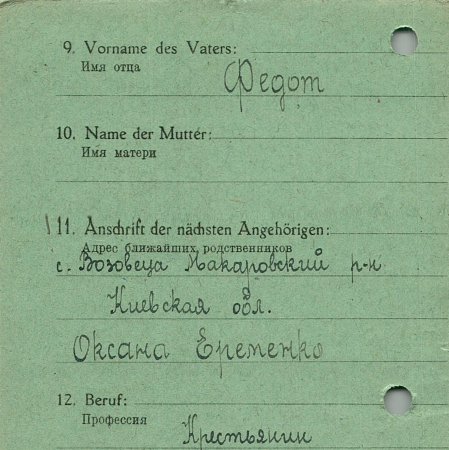 9. Vorname des Vaters:
Имя отца
Федот
10. Name der Mutter:
Имя матери
11. Anschrift der nächsten Angehörigen:
Адрес ближайших родственников
с. Возовеца Макаровский р-н
Киевская обл.
Оксана Еременко
12. Beruf:
Профессия
Крестьянин